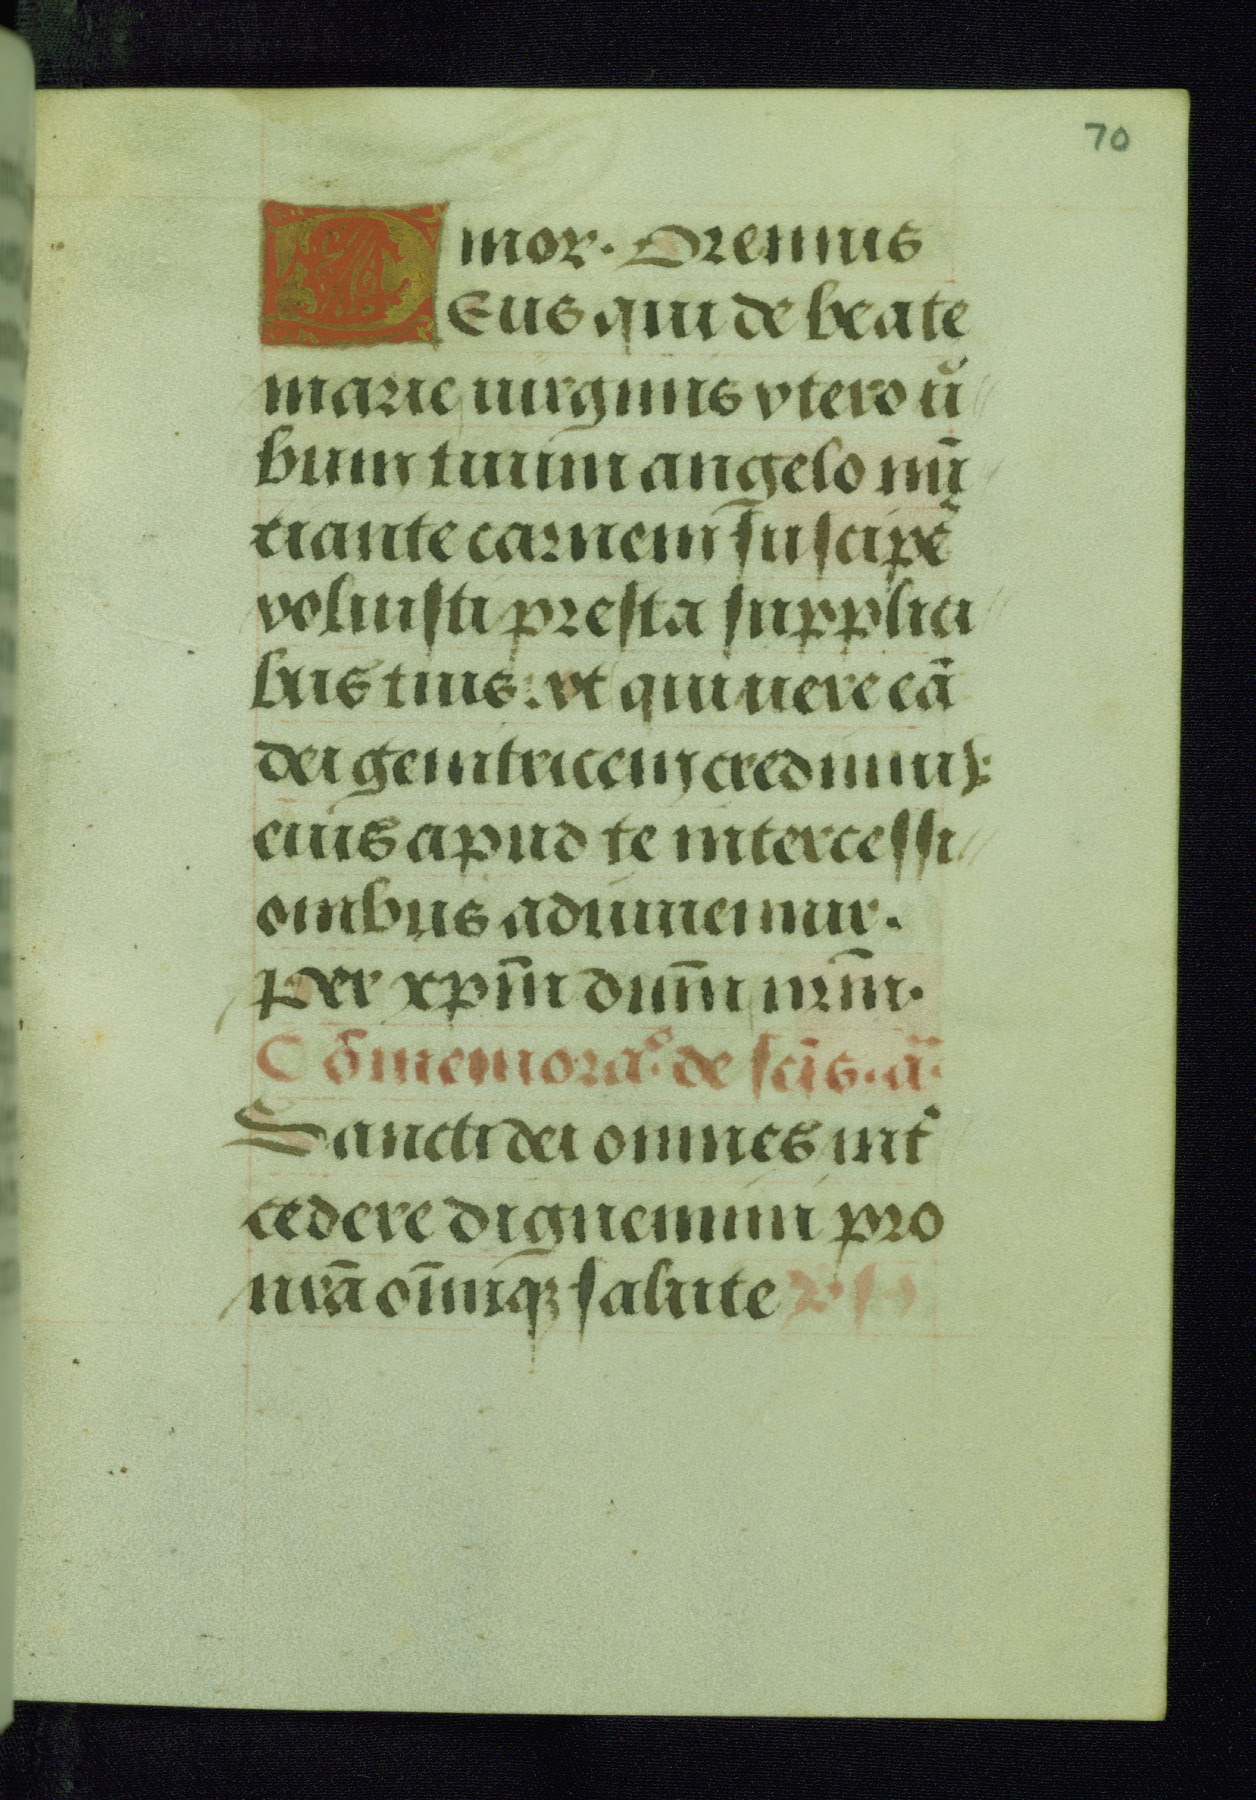 70
mor. Oremus
Deus qui de beate
marie uirginis vtero ũ
bum tuum angelo nũ
tiante carnem suscipẽ
voluisti presta supplici
bus tuis: vt qui uere eã
dei genitricem credimus:
eius apud te intercessi
onibus adiuuemur.
Per xp̄m dnm̄ nr̄m.
Cõmemoraᵒ. de scīs. ā.
Sancti dei omnes int̉
cedere dignemini pro
nrã oīniqꝫ salute